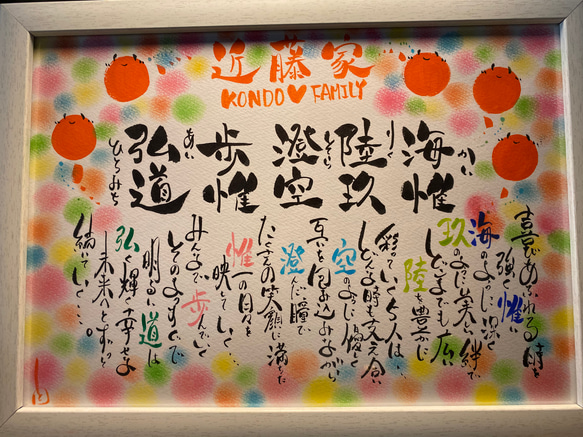 近藤家
KONDO♥FAMILY
かい
海惟
陸玖
澄空
あい
歩惟
ひろみち
弘道
喜びあふれる時を
強く惟い
海のように深く
玖のように美しい絆で
どこまでも広い
陸を豊かに
彩っていく5人は…
どんな時も支え合い
空のように優しく
互いを包み込みながら
澄んだ瞳で
たくさんの笑顔に満ちた
惟一の日々を
映していく
みんなで歩んでいく
明るい道は
弘く輝く幸せな
未来へとずっと
続いていく…。